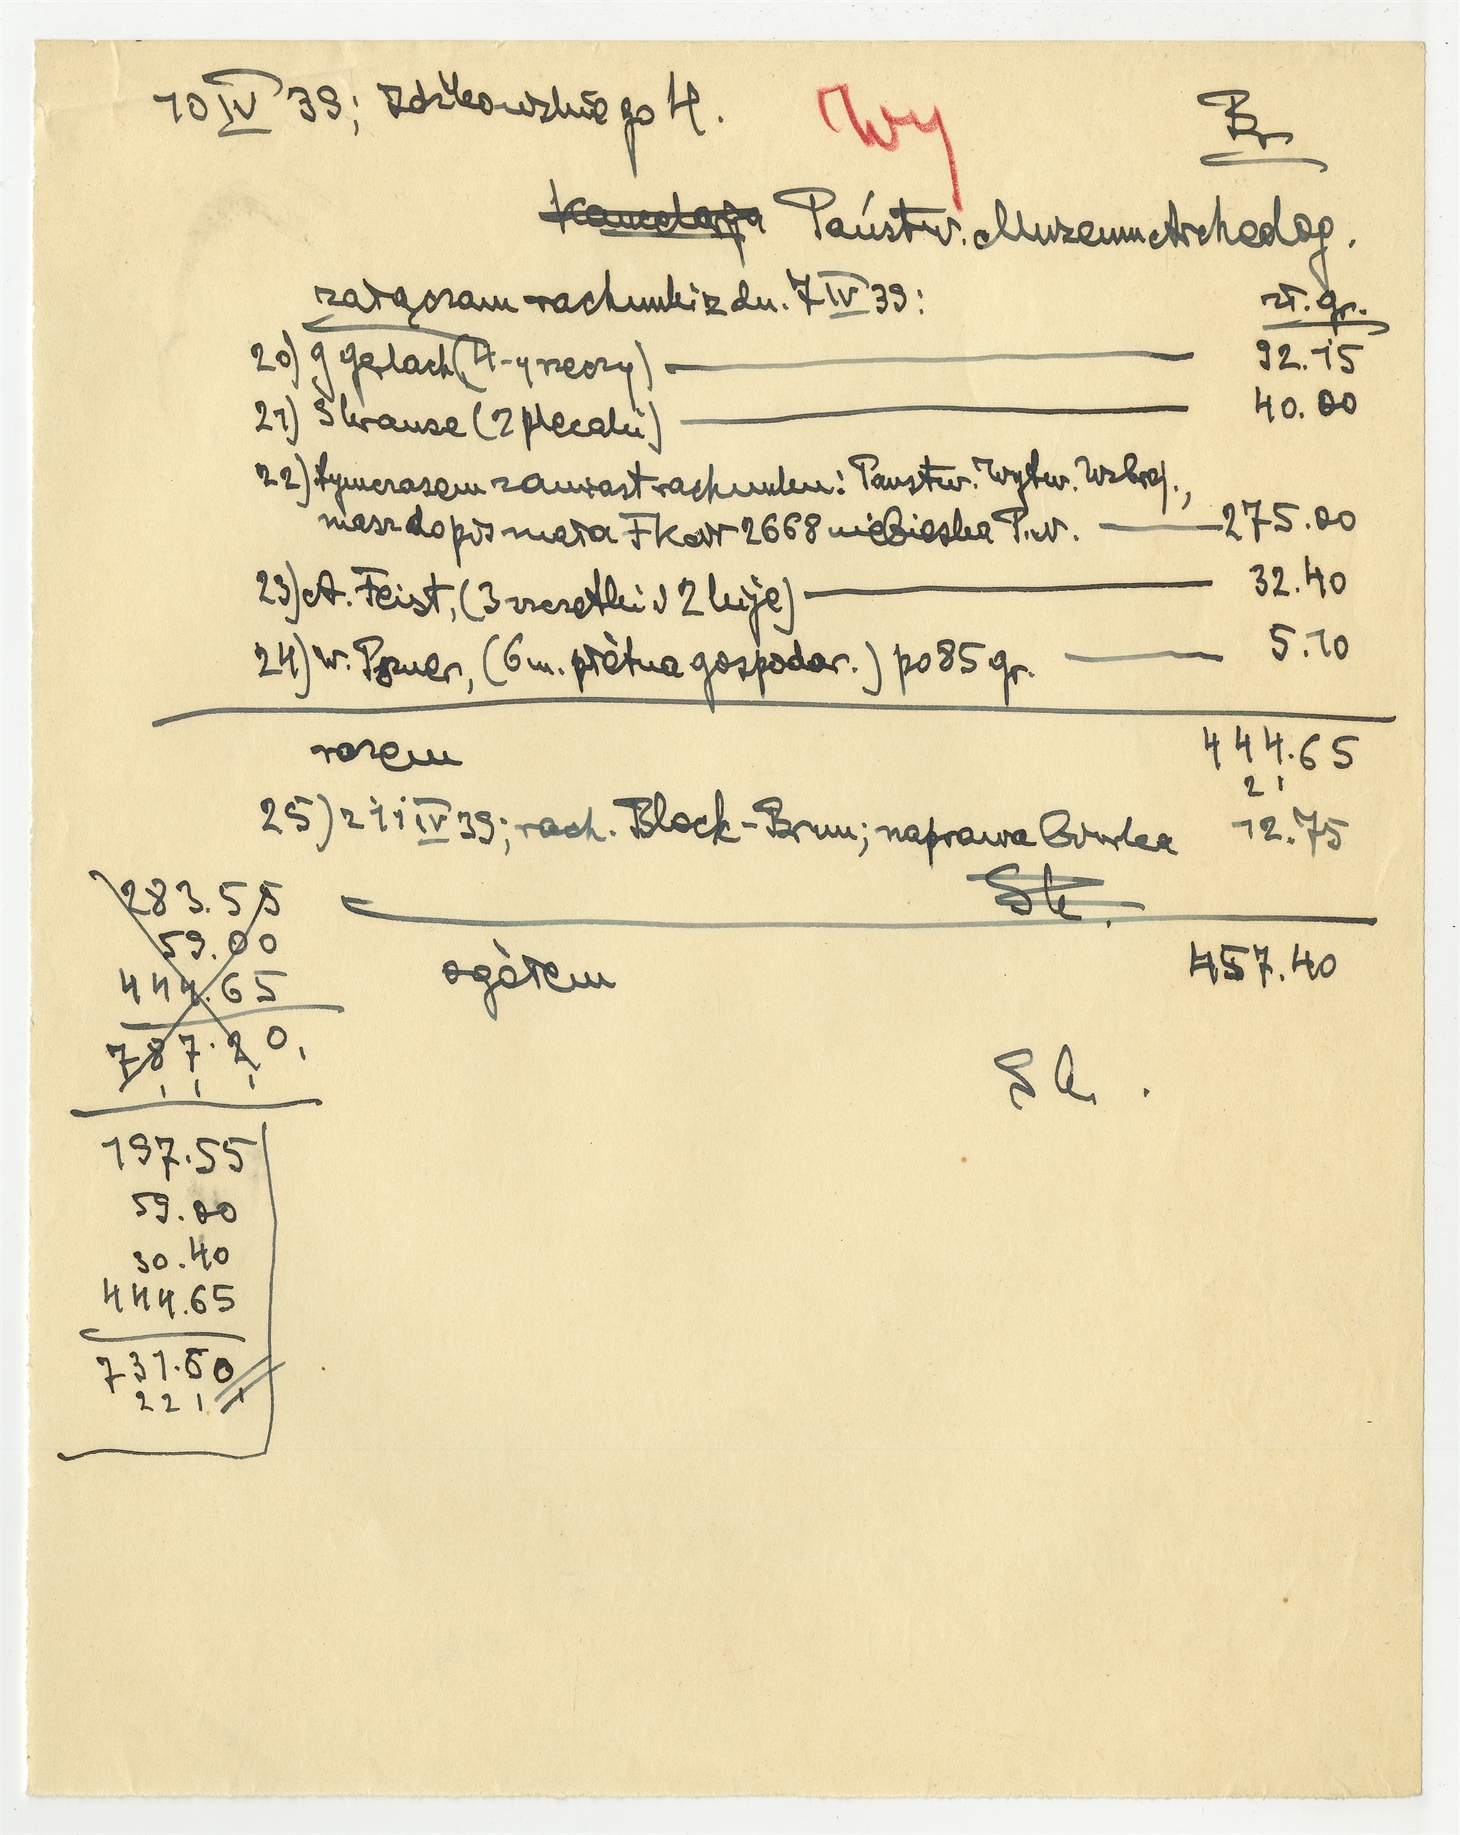 10 IV 39; Żdżkowskiego 4.
Wy
Br
Kancelarja Państw. Muzeum Archeolog.
załączam rachunki z dn. 7 IV 39:
zł. gr.
20) G Gerlach (4-y rzeczy) 92.15
21) S Krause (2 plecaki) 40.00
22) tymczasem zamiast rachunku: Państw. Wytw. Uzbroj.,
masz do pis mała FK nr 2668 niebieska P.W. 275.00
23) A. Feist, (3 szczotki i 2 kije) 32.40
24) W. (6 m. płótna gospodar.) po 85 gr. 5.10
razem 444.65
2 1
25) z 11 IV 39; rach. Block-Brun; naprawa biurka 12.75
Sk.
ogółem 457.40
Sk.
283.55
59.00
444.65
787.20.
1 1 1
197.55
59.00
30.40
444.65
731.60
2 2 1 1